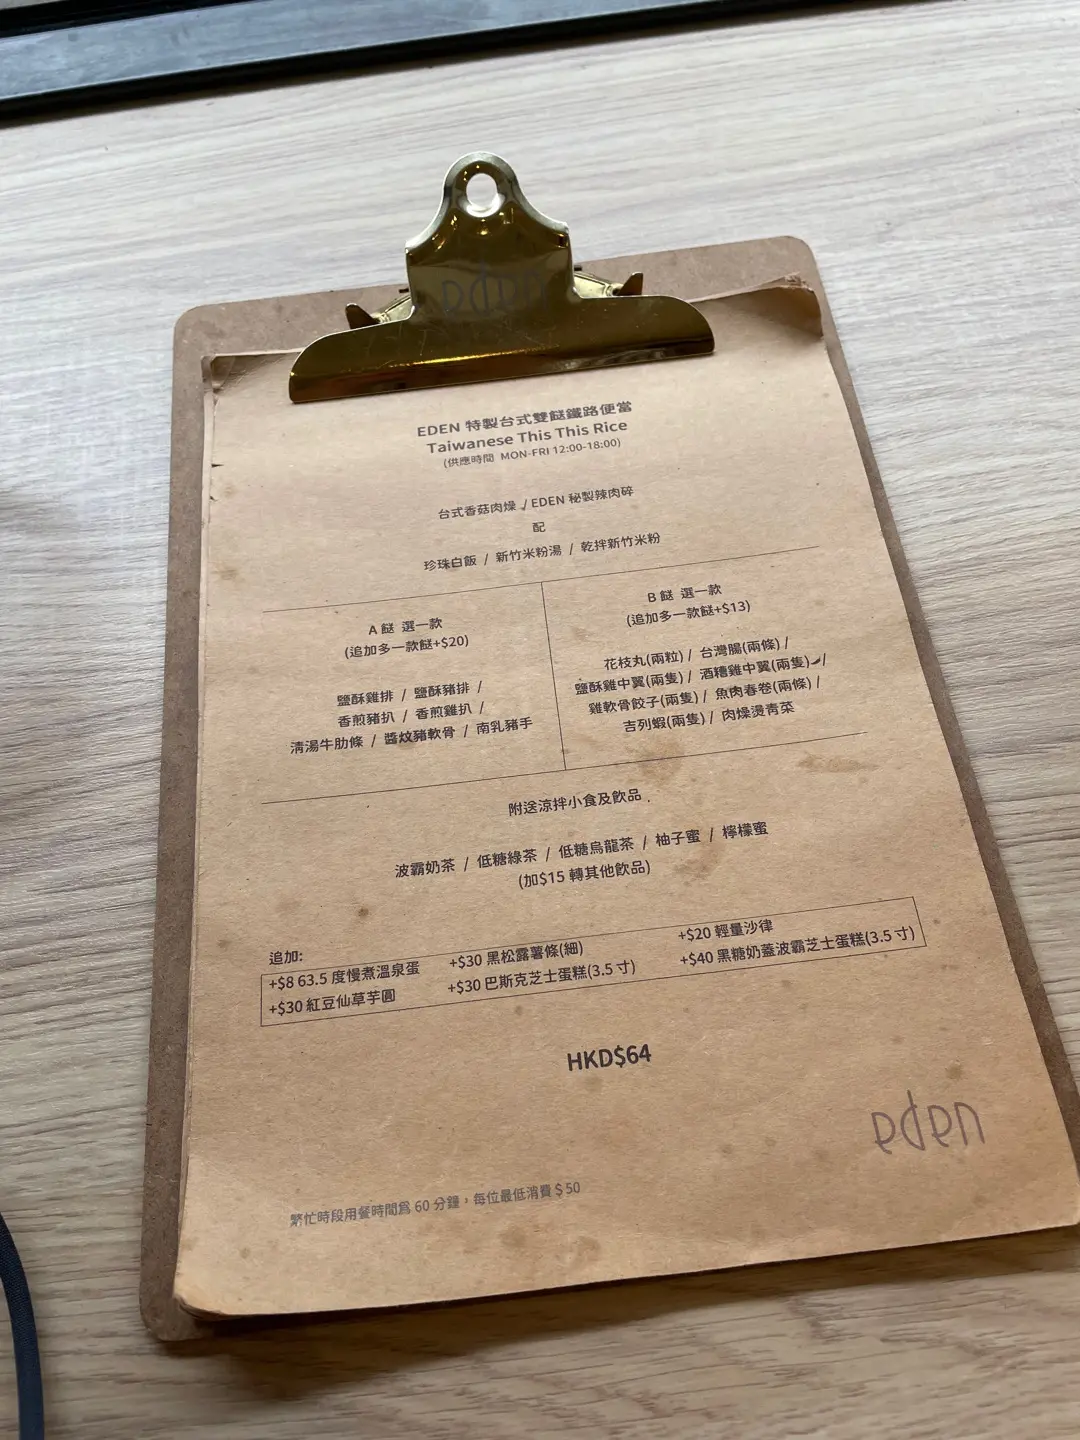 eden
EDEN 特製台式雙餸鐵路便當
Taiwanese This This Rice
(供應時間 MON-FRI 12:00-18:00)
台式香菇肉燥 / EDEN 秘製辣肉碎
配
珍珠白飯 / 新竹米粉湯 / 乾拌新竹米粉
A 餸 選一款
(追加多一款餸+$20)
鹽酥雞排 / 鹽酥豬排 /
香煎豬扒 / 香煎雞扒 /
清湯牛肋條 / 醬炆豬軟骨 / 南乳豬手
B 餸 選一款
(追加多一款餸+$13)
花枝丸(兩粒) / 台灣腸(兩條) /
鹽酥雞中翼(兩隻) / 酒糟雞中翼(兩隻) /
雞軟骨餃子(兩隻) / 魚肉春卷(兩條) /
吉列蝦(兩隻) / 肉燥燙青菜
附送涼拌小食及飲品
波霸奶茶 / 低糖綠茶 / 低糖烏龍茶 / 柚子蜜 / 檸檬蜜
(加$15 轉其他飲品)
追加:
+$8 63.5 度慢煮溫泉蛋 +$30 黑松露薯條(細) +$20 輕量沙律
+$30 紅豆仙草芋圓 +$30 巴斯克芝士蛋糕(3.5 寸) +$40 黑糖奶蓋波霸芝士蛋糕(3.5 寸)
HKD$64
eden
繁忙時段用餐時間為 60 分鐘，每位最低消費 $ 50